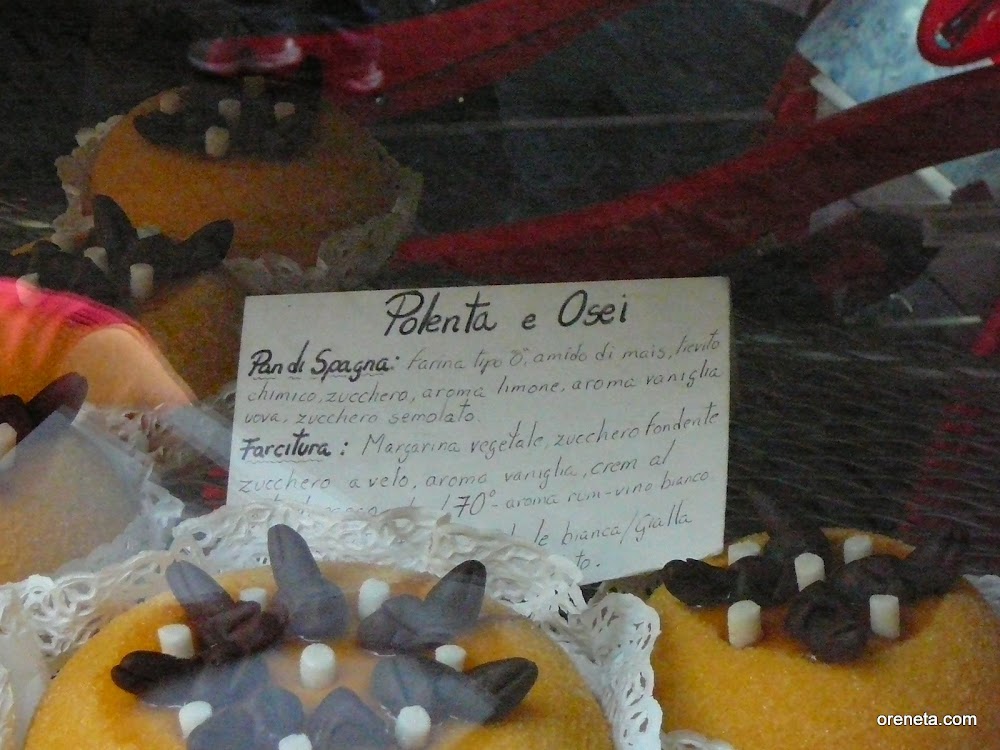 Polenta e Osei
Pan di Spagna: farina tipo "0", amido di mais, lievito
chimico, zucchero, aroma limone, aroma vaniglia
uova, zucchero semolato.
Farcitura: Margarina vegetale, zucchero fondente
zucchero a velo, aroma vaniglia, crem al
70° - aroma rum - vino bianco
le bianca/Gialla
to.
oreneta.com